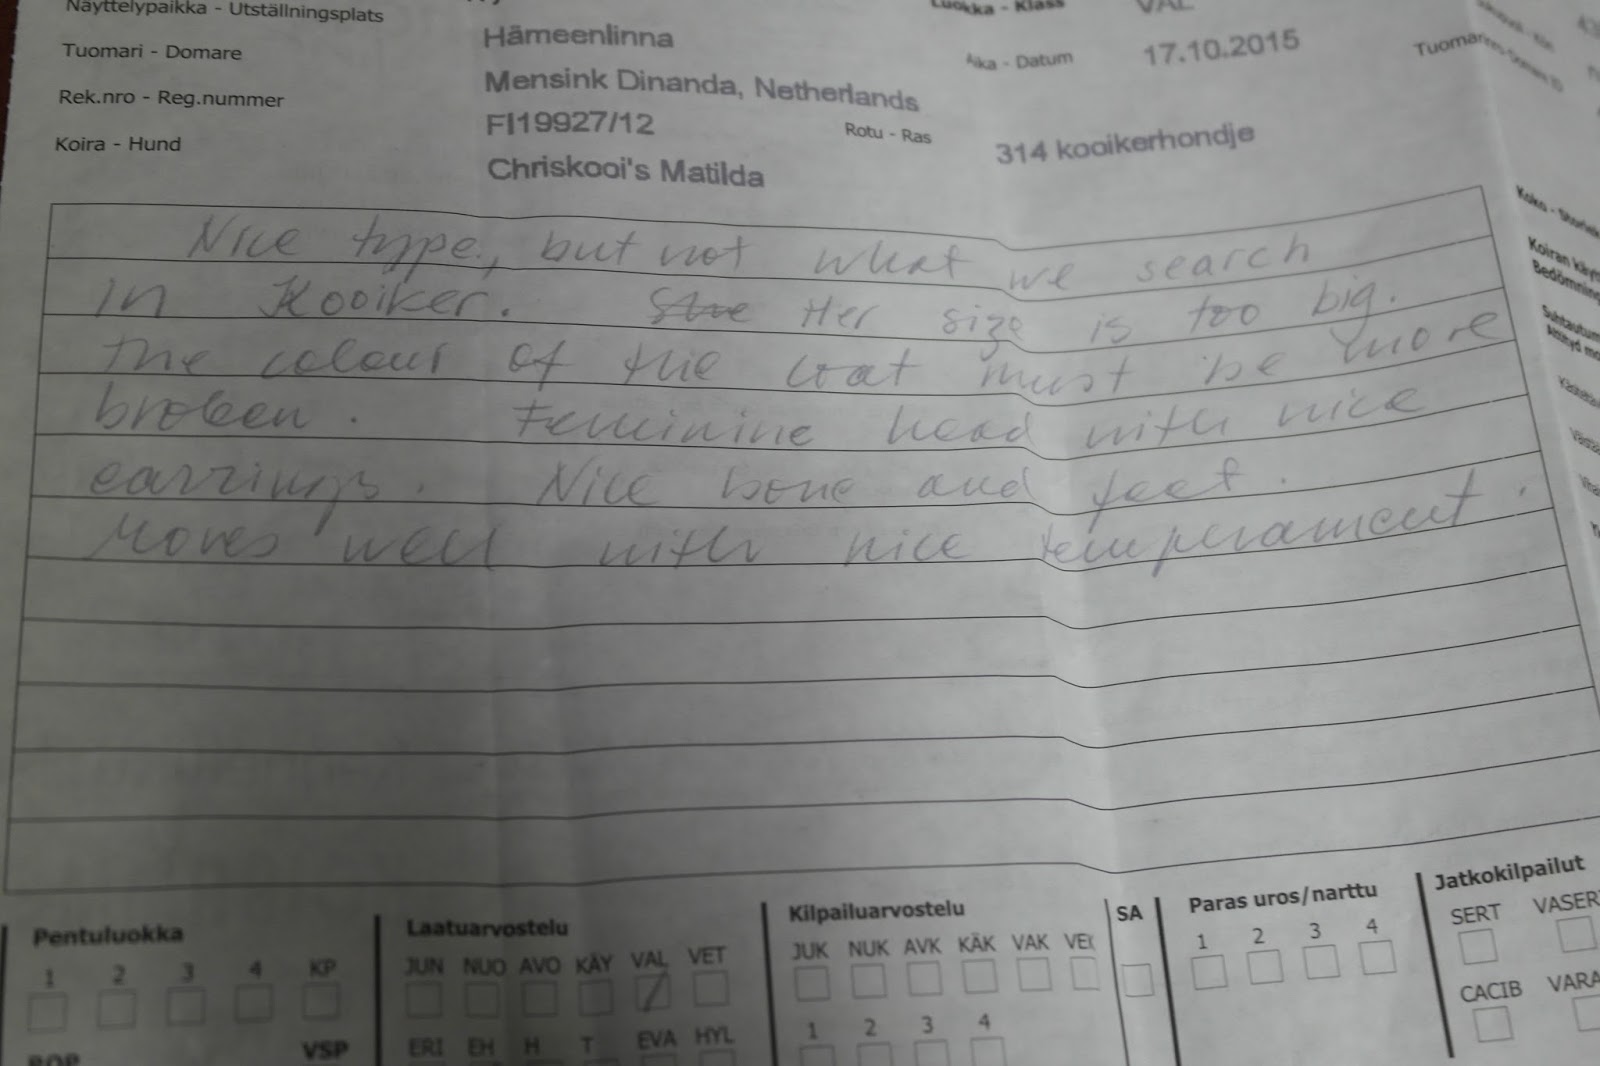 Näyttelypaikka - Utställningsplats Hämeenlinna Luokka - Klass VAL
Tuomari - Domare Mensink Dinanda, Netherlands Aika - Datum 17.10.2015
Rek.nro - Reg.nummer FI19927/12 Rotu - Ras 314 kooikerhondje
Koira - Hund Chriskooi's Matilda
Nice type, but not what we search
in Kooiker. Her size is too big.
The colour of the coat must be more
broken. Feminine head with nice
earrings. Nice bone and feet.
Moves well with nice temperament.
Pentuluokka
1 2 3 4 KP
VSP
Laatuarvostelu
JUN NUO AVO KÄY VAL VET
ERI EH H T EVA HYL
Kilpailuarvostelu
JUK NUK AVK KÄK VAK
1 2 3 4
SA
Paras uros/narttu
1 2 3 4
Jatkokilpailut
SERT VASER
CACIB VARA